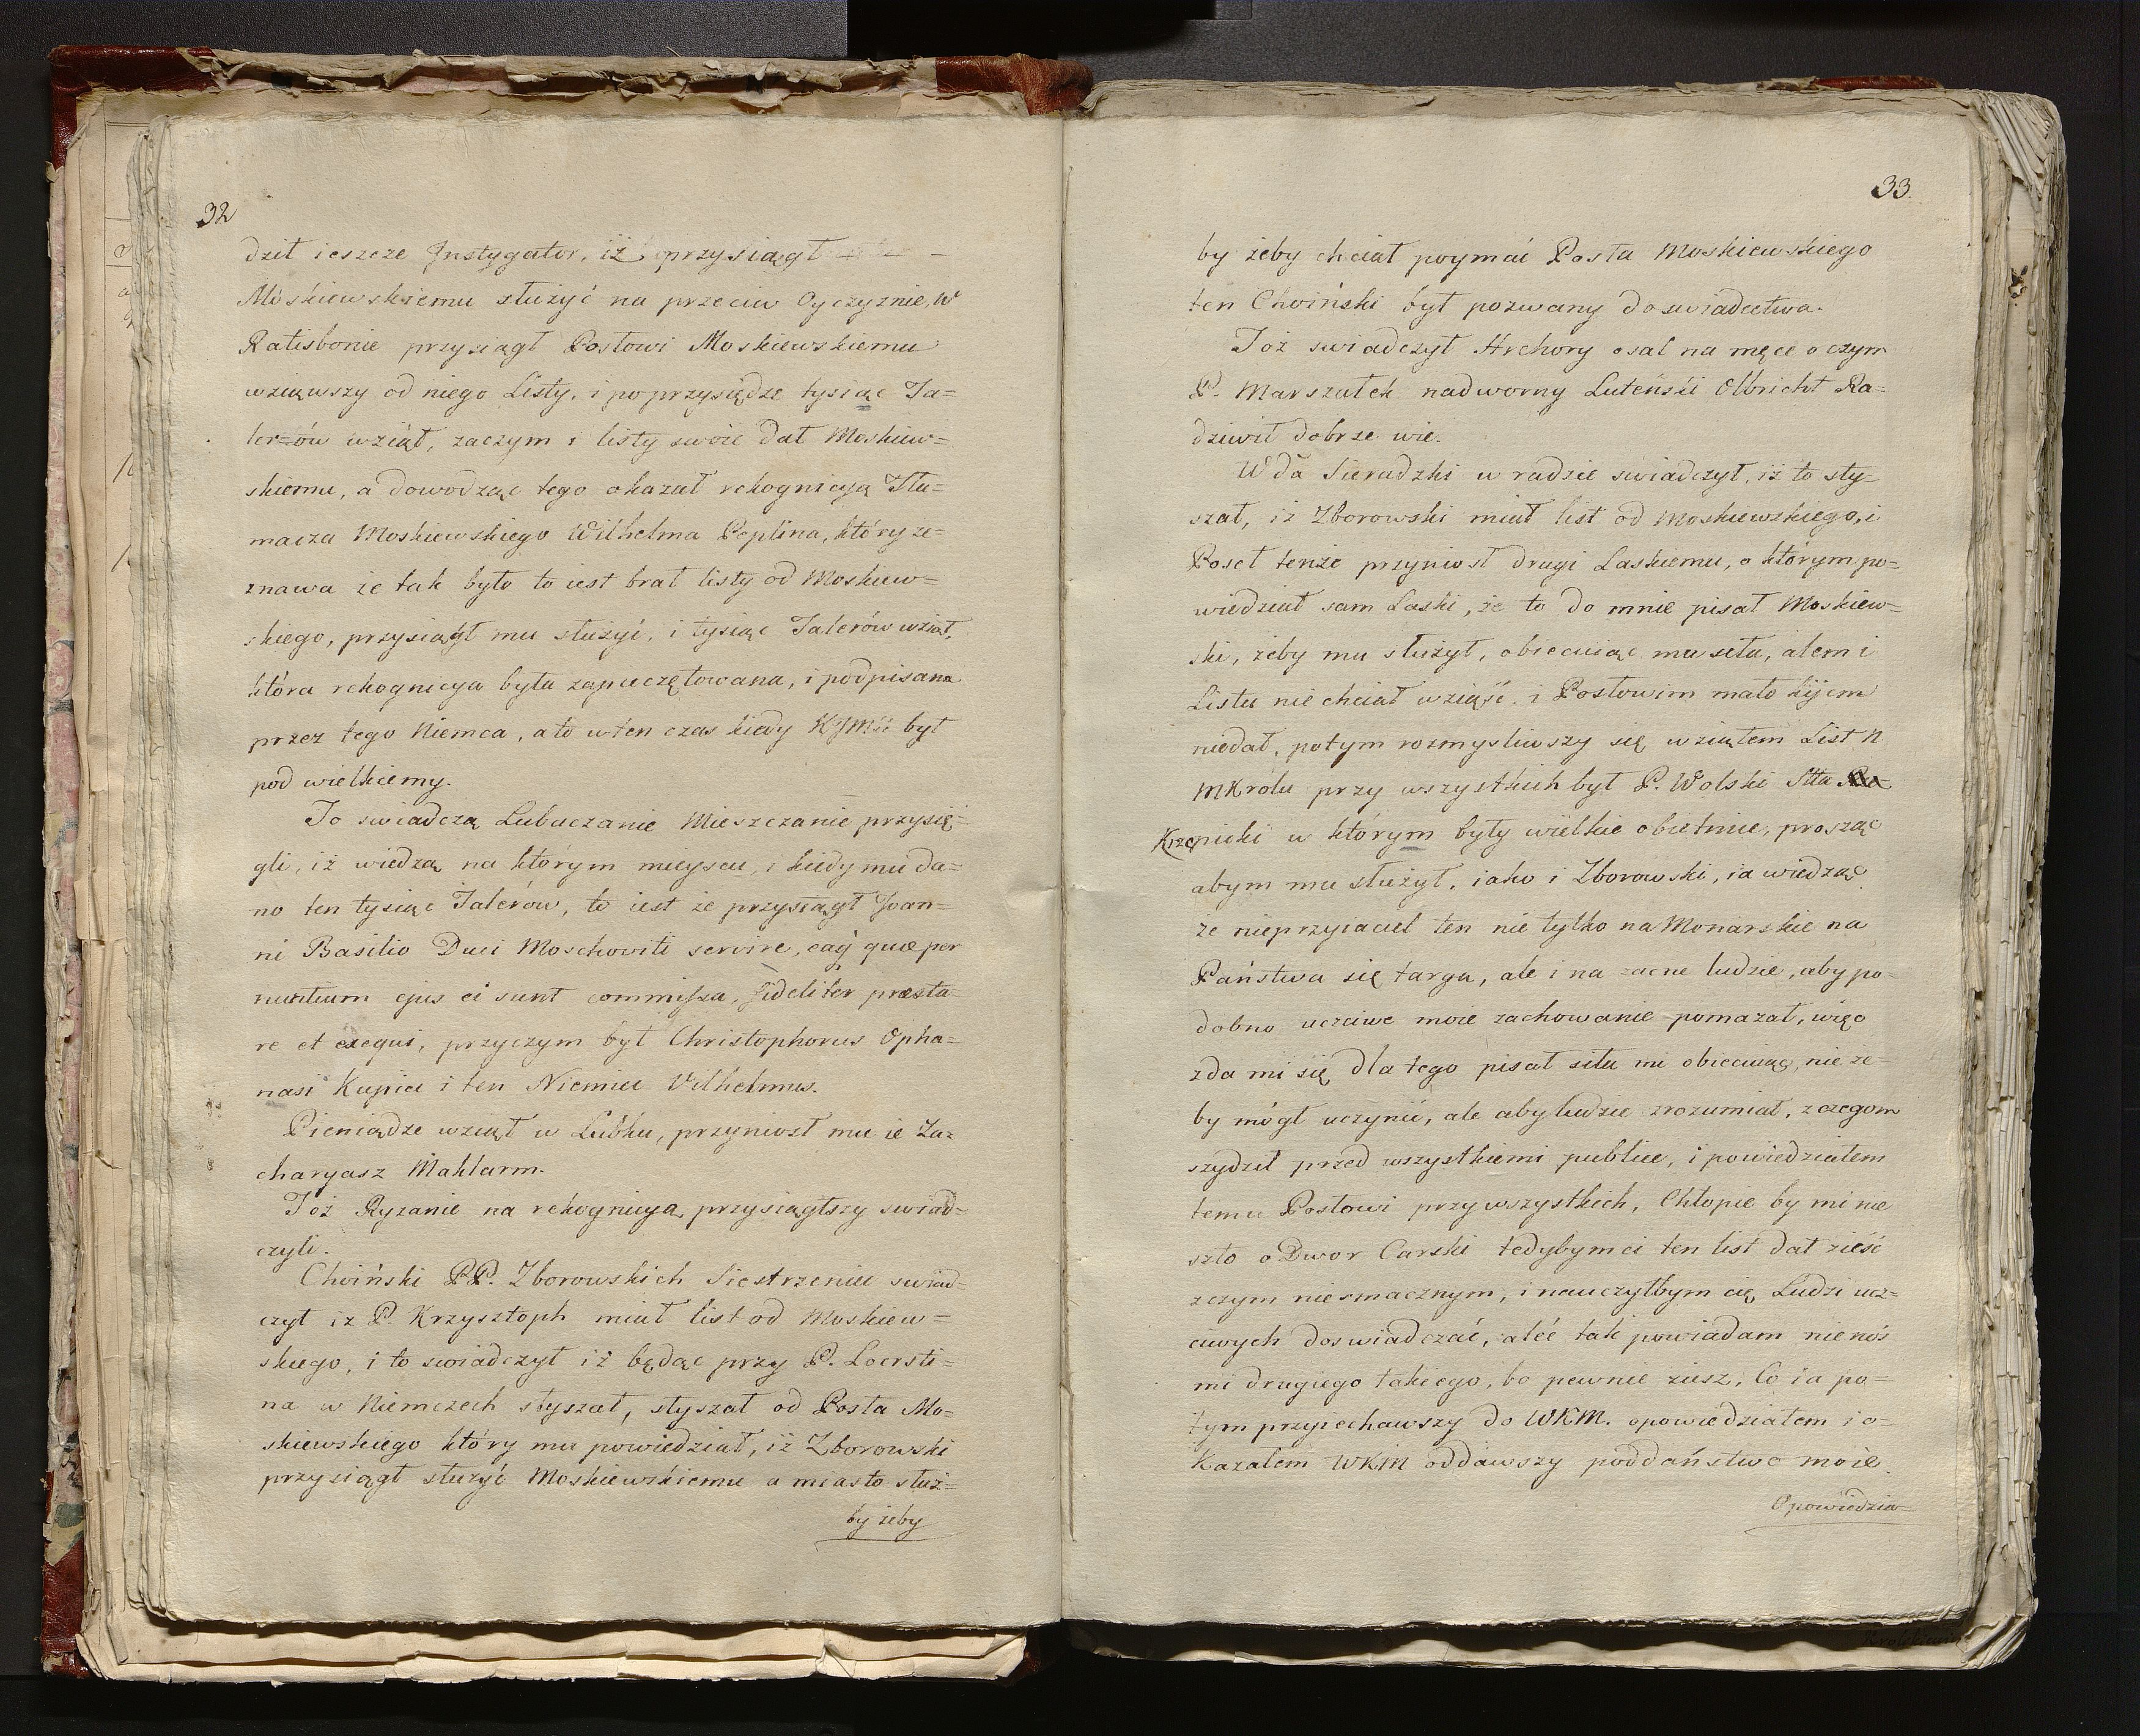 32
dził ieszcze Instygator, iż przysiągł
Moskiewskiemu służyć na przeciw Oyczyznie, w
Ratisbonie przysiągł Posłowi Moskiewskiemu
wziąwszy od niego Listy, i poprzysiędze tysiąc Ta=
ler=ów wziął, zaczym i listy swoie dał Moskiew=
skiemu, a dowodząc tego okazał rekognicyą Tłu=
macza Moskiewskiego Wilhelma Poplina, który ze=
znawa że tak było to iest brał listy od Moskiew=
skiego, przysiągł mu służyć, i tysiąc Talerów wziął,
która rekognicya była zapieczętowana, i podpisana
przez tego Niemca, a to w ten czas kiedy KJMść był
pod wielkiemy.
To swiadczą Lubuczanie Mieszczanie przysię=
gli, iż wiedzą na którym mieyscu, i kiedy mu da=
no ten tysiąc Talerów, to iest że przysiągł Joan=
ni Basilio Duci Moschoviti servire, eaq quæ per
nuntium ejus ei sunt commissa, fideliter præsta=
re et exequi, przyczym był Christophorus Opha=
nasi Kupiec i ten Niemiec Vilhelmus.
Pieniądze wziął w Lubku, przyniosł mu ie Za=
charyasz Mahlarm.
Toż Ryzanie na rekognicyą przysiągłszy swiad=
czyli.
Choiński PP. Zborowskich Siestrzeniec swiad=
czył iż P. Krzysztoph miał list od Moskiew=
skiego, i to swiadczył iż będąc przy P. Loersti=
na w Niemczech słyszał, słyszał od Posła Mo=
skiewskiego który mu powiedział, iż Zborowski
przysiągł służyć Moskiewskiemu a miasto służ=
by żeby
33.
by żeby chciał poymać Posła Moskiewskiego
ten Choiński był pozwany do swiadectwa.
Toż swiadczył Hrehory osal na męce o czym
P. Marszałek nadworny Luteński Olbricht Ra=
dziwił dobrze wie.
Wda Sieradzki w radzie swiadczył, iż to sły=
szał, iż Zborowski miał list od Moskiewskiego, i
Poseł tenże przyniosł drugi Laskiemu, o którym po=
wiedział sam Laski, że to do mnie pisał Moskiew=
ski, żeby mu służył, obiecuiąc mu siła, alem i
Listu nie chciał wziąść, i Posłowim mało kijem
niedał, potym rozmysliwszy się wziąłem List N
MKrólu przy wszystkich był P. Wolski Stta
Krzepicki w którym były wielkie obietnice, prosząc
abym mu służył, iako i Zborowski, ia wiedząc
że nieprzyiaciel ten nie tylko na Monarskie na
Państwa się targa, ale i na zacne ludzie, aby po=
dobno uczciwe moie zachowanie pomazał, więc
zda mi się dla tego pisał siła mi obiecuiąc, nie że=
by mógł uczynić, ale aby ludzie zrozumiał, z czegom
szydził przed wszystkiemi publice, i powiedziałem
temu Posłowi przy wszystkich, Chłopie by mi nie
szło o Dwor Carski tedybymci ten list dał zieść
zczym niesmacznym, i nauczyłbym cię Ludzi ucz=
ciwych doswiadczać, aleć tak powiadam nie nos
mi drugiego takiego, bo pewnie ziesz, Co ia po=
tym przyiechawszy do WKM. opowiedziałem i o=
Kazałem WKM oddawszy poddaństwo moie.
Opowiedzia=